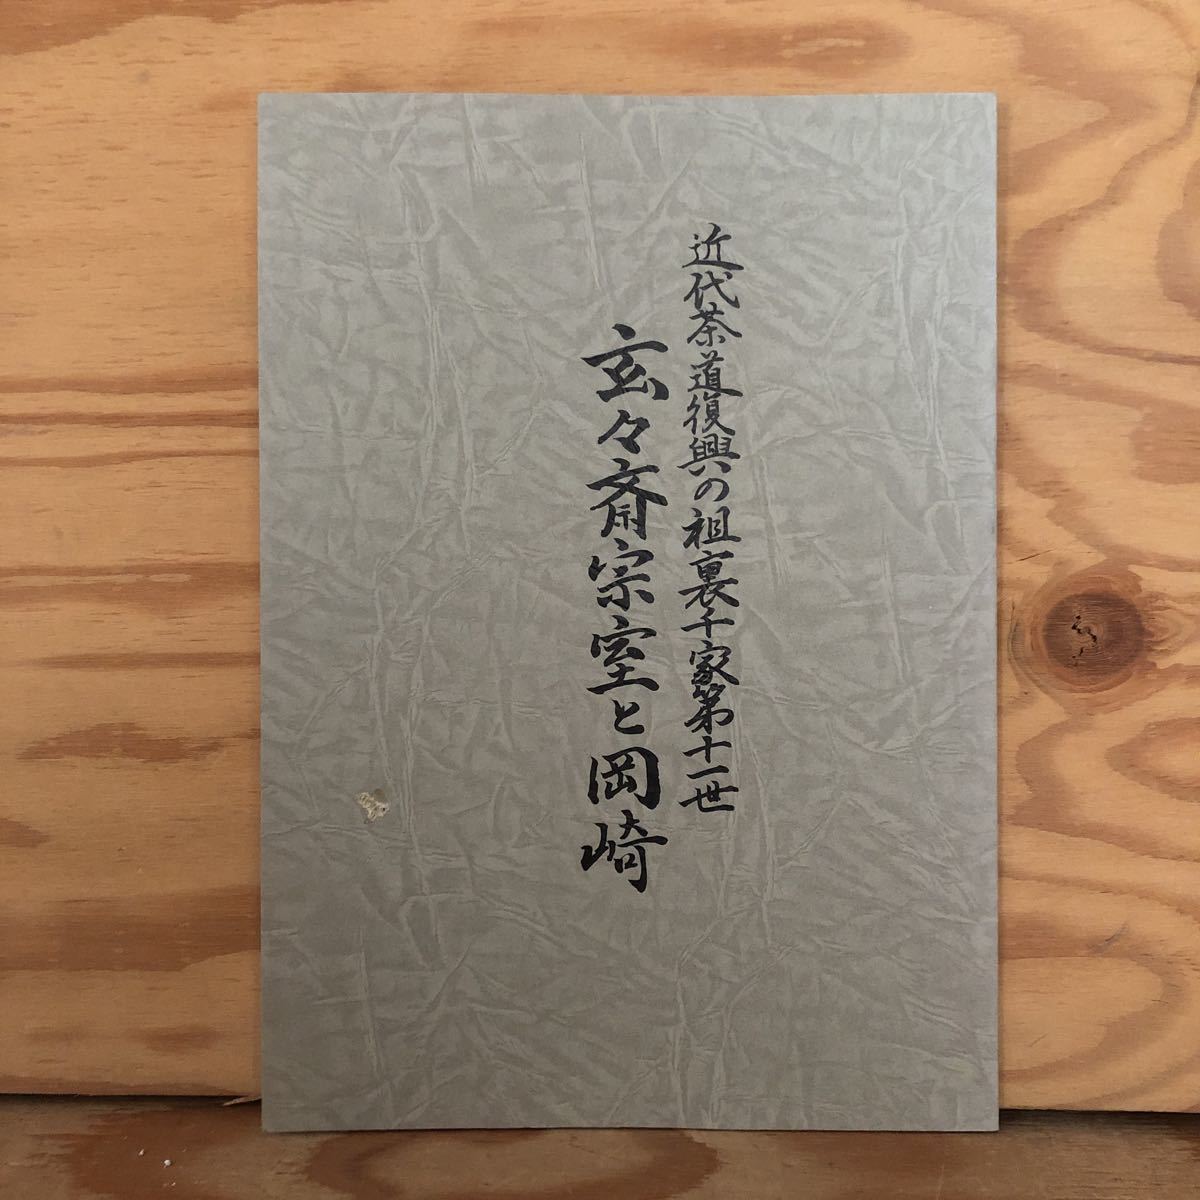 近代茶道復興の祖裏千家第十一世
玄々斎宗室と岡崎